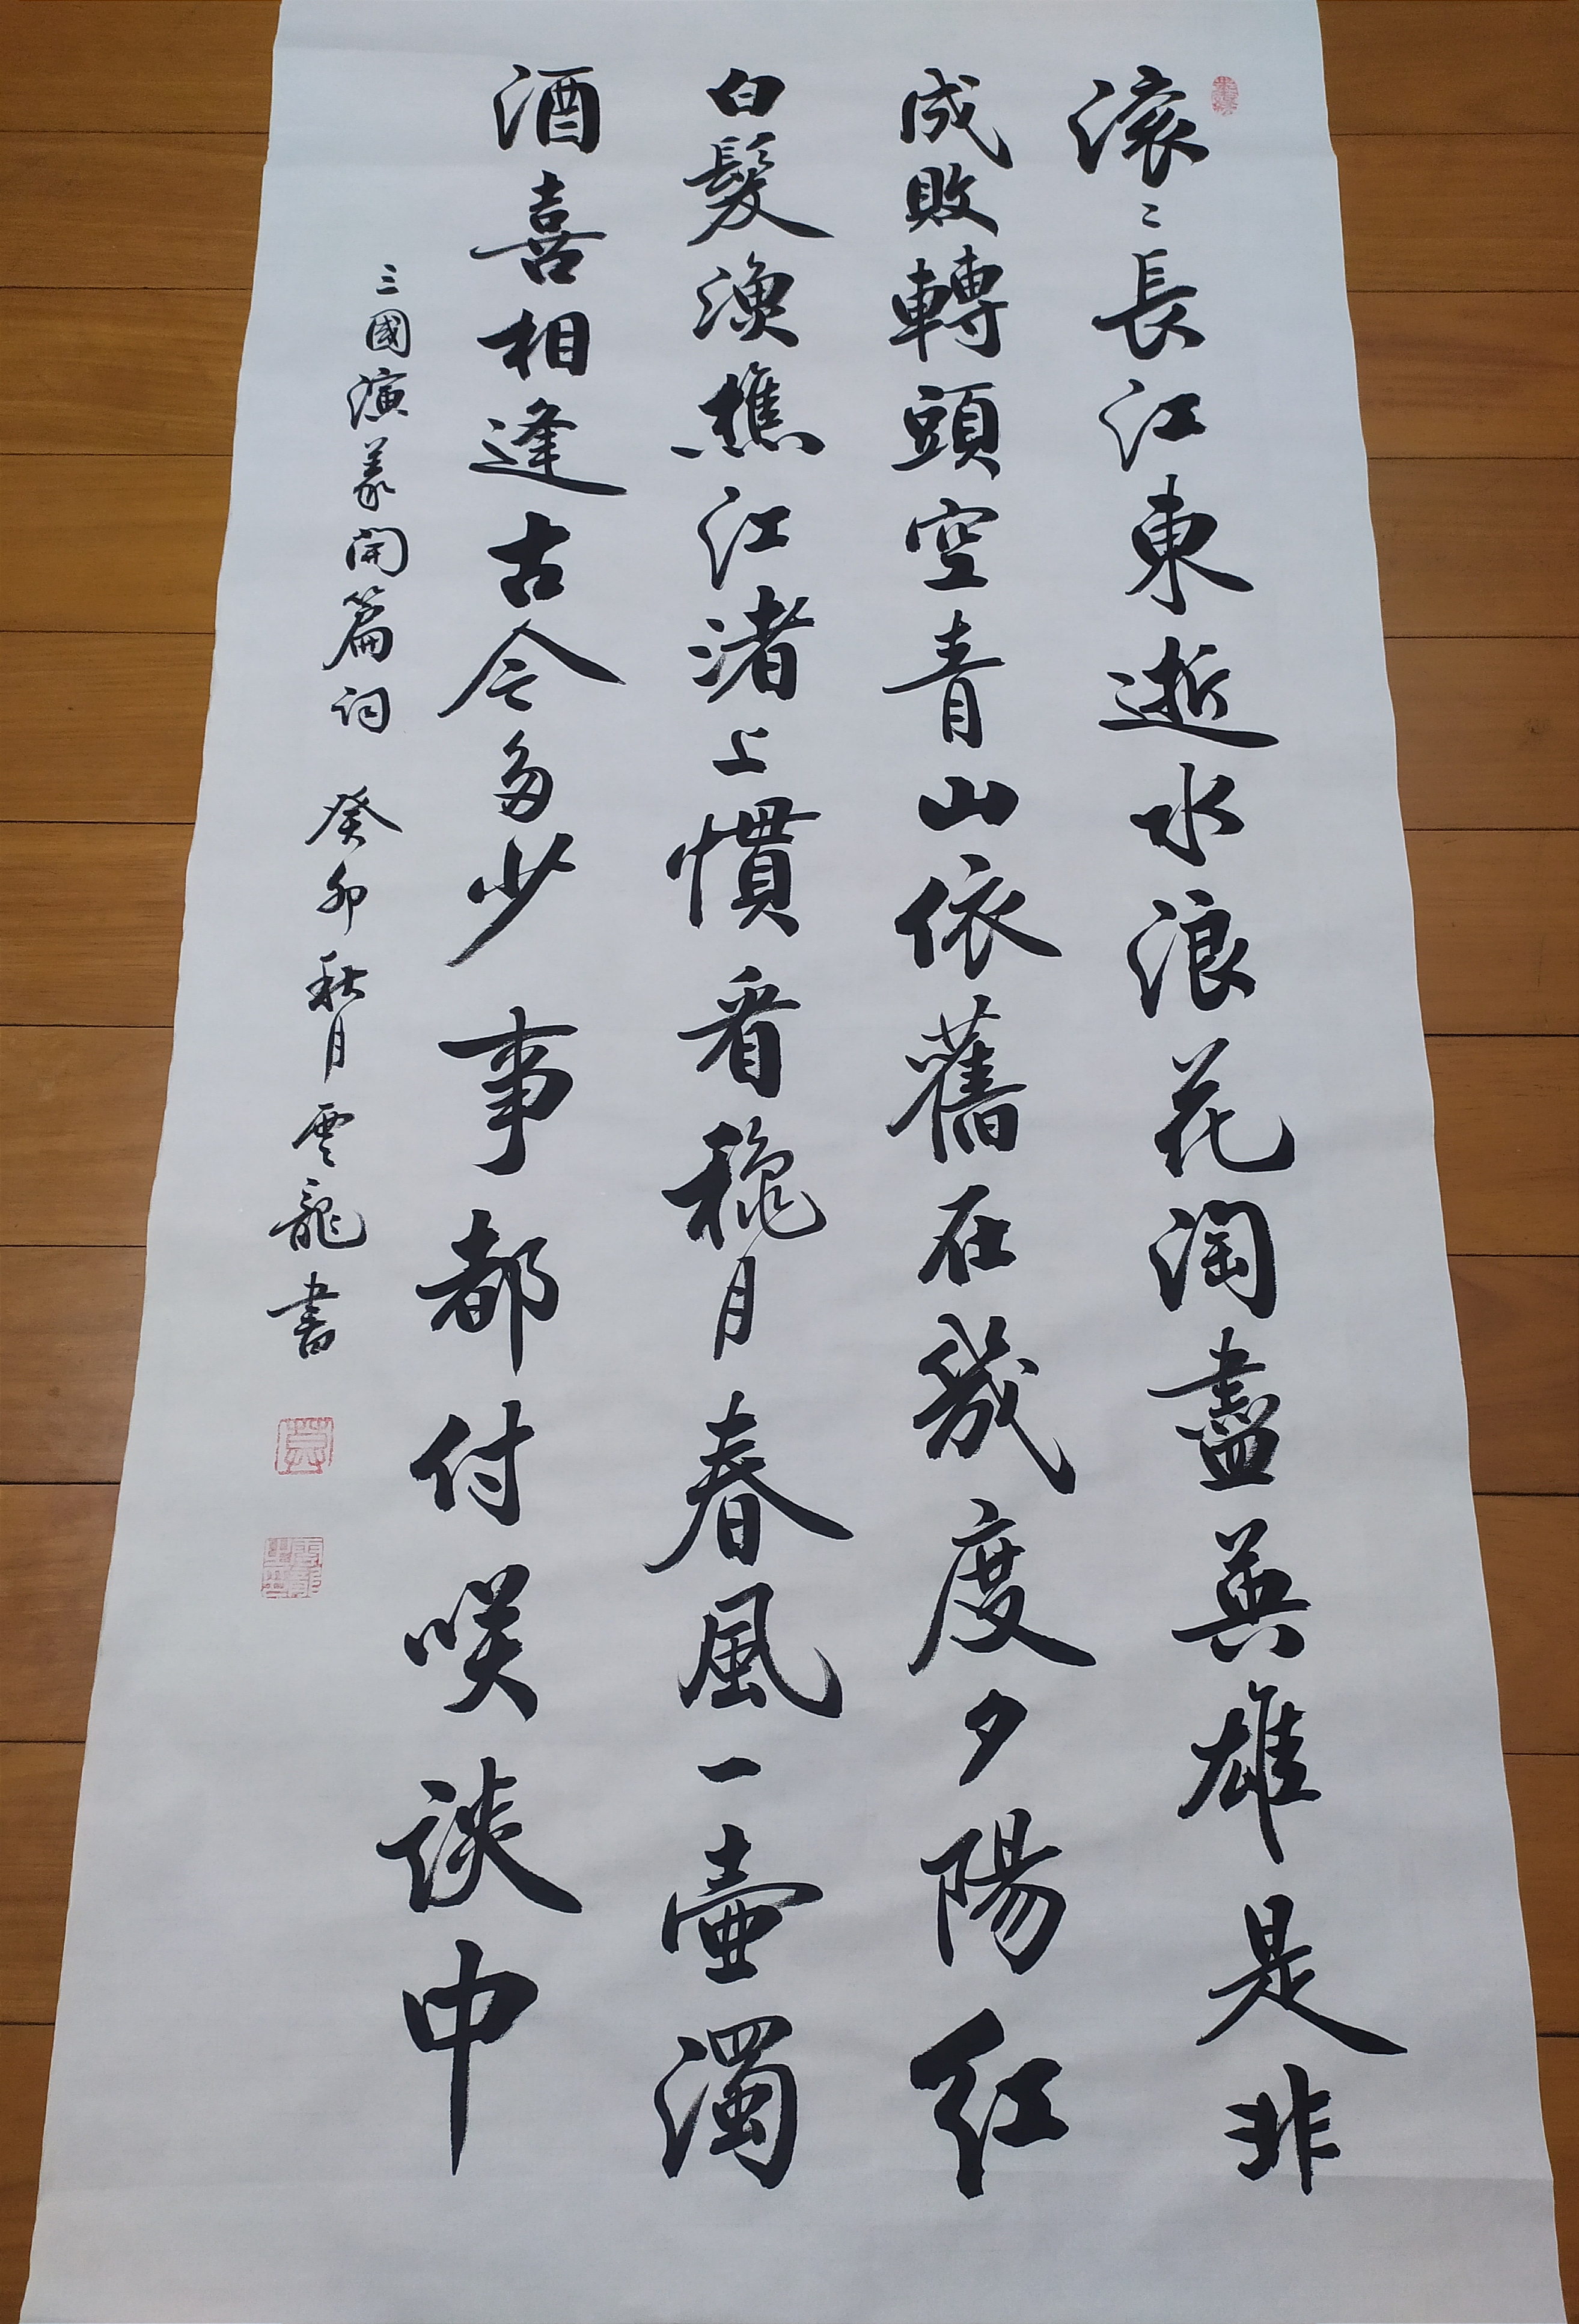 滚〻長江東逝水浪花淘盡英雄是非
成敗轉頭空青山依舊在幾度夕陽紅
白髮漁樵江渚上慣看穐月春風一壷濁
酒喜相逢古今多少事都付咲談中
三國演義開篇詞 癸卯秋月雲龍書